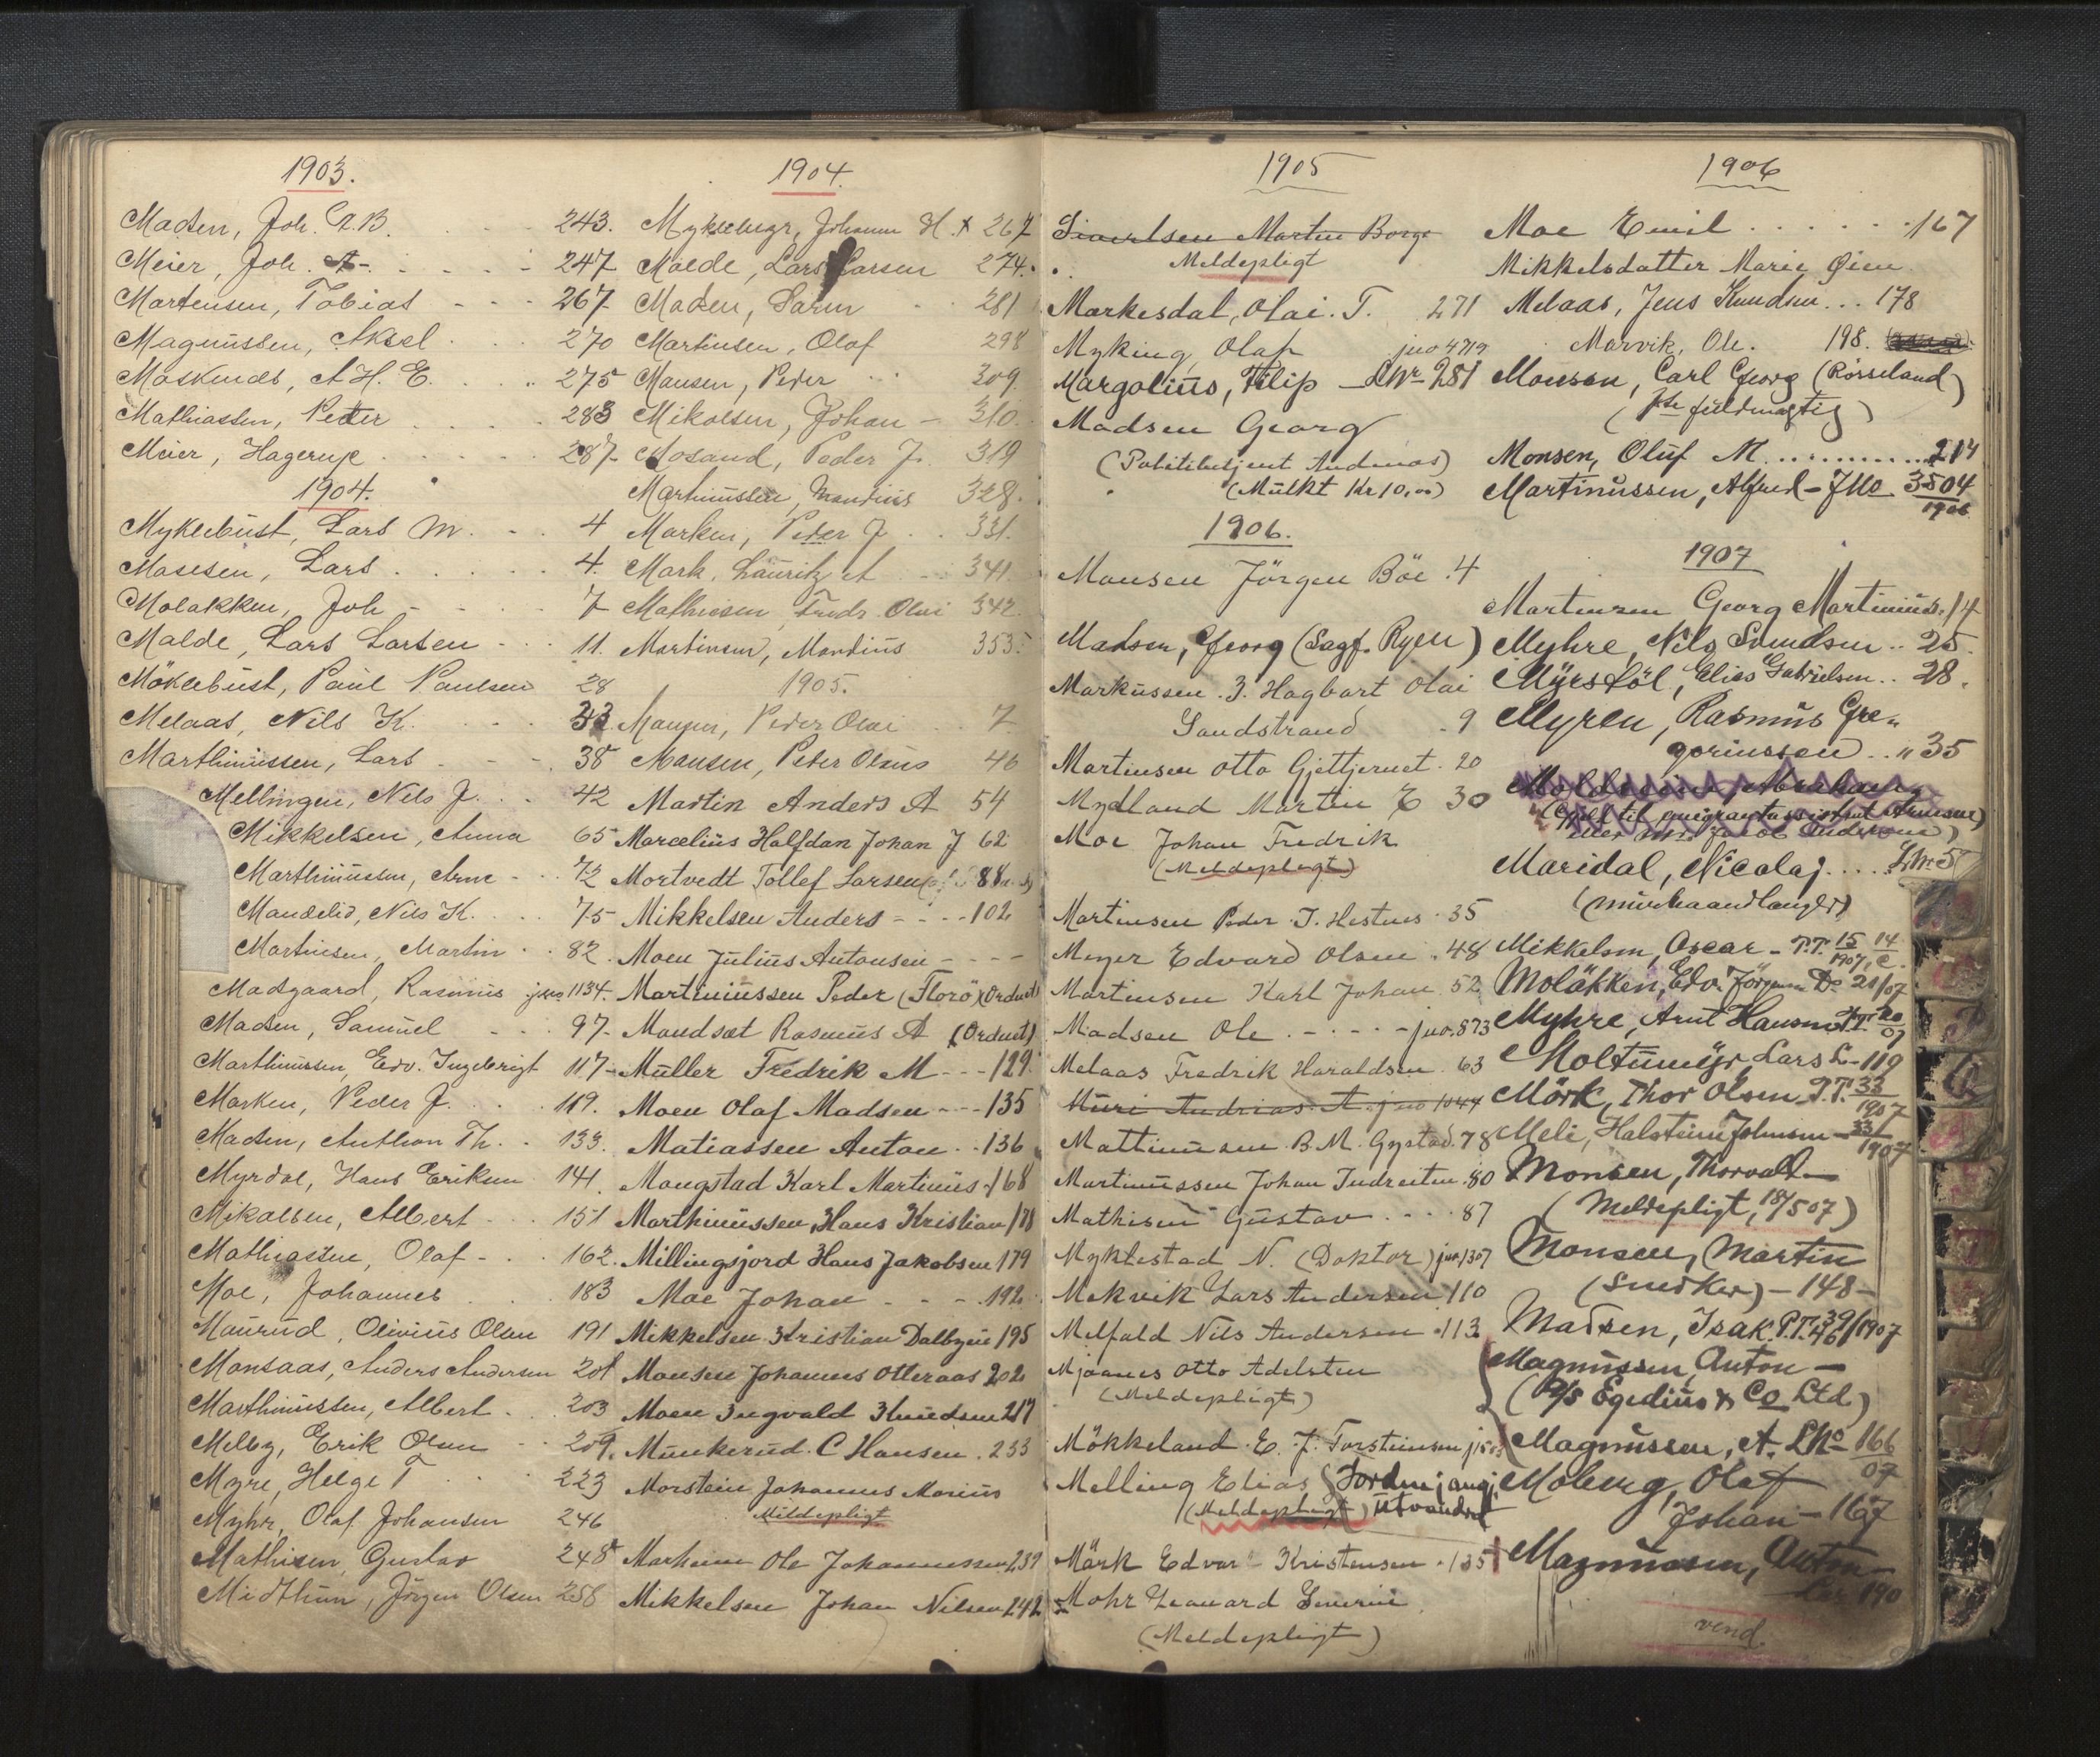 1903.
Madsen, Joh. 243.
Meier, Joh. A. 247
Martensen, Tobias 267
Magnussen, Aksel 270
A. H. E. 275
Mathiassen, Peder 283
Meier, Hagerup 287
1904.
Myklebust, Lars M. 4
Lars 4.
Molakken, Joh 7
Malde, Lars Larsen 11.
Möklebust, Paul Paulsen 28
Melaas, Nils K. 33
Marthinussen, Lars 38
Mellingen, Nils J. 42
Mikkelsen, Anna 65
Marthinussen, Arne 72
Mandelid, Nils K. 75
Martinsen, Martin 82.
Madsgaard, Rasmus jno 1134.
Madsen, Samuel 97
Marthinussen, Edv. Ingebrigt 117
Marken, Peder J. 119.
Madsen, Anthon Th. 133.
Myrdal, Hans Eriksen 141.
Mikalsen, Albert 151
Mathiassen, Olaf 162.
Moe, Johannes 183
Maurud, Olinius Olsen 191
Monsaas, Anders Andersen 201
Marthinussen, Albert 203
Melby, Erik Olsen 209.
Myre, Helge T 223
Myhr, Olaf Johansen 246
Mathisen, Gustav 248
Midthun, Jörgen Olsen 258
1904.
Johann H. 267
Malde, Lars Larsen 274.
Madsen, 281
Martinsen, Olaf 298
Monsen, Peder 309
Mikalsen, Johan 310.
Mosand, Peder J. 319
Martinussen, Mandius 328.
Marken, Peder J 331.
Mark, Lauritz A 341.
Mathiesen, Fredr. Olai 342.
Martinsen, Mandius 353.
1905.
Monsen, Peder Olai 7
Monsen, Peder Olaus 46
Martin Anders A 54
Marcelius Halfdan Johan J 62
Mortvedt Tollef Larsen 88
Mikkelsen Anders 102
Moen Julius Antonsen
Martiniussen Peder (Florö) (Ordnet)
Mandsæt Rasmus A (Ordnet)
Müller Fredrik M 129.
Moen Olaf Madsen 135
Matiassen Anton 136
Mangstad Karl Martinius 168
Marthinussen, Hans Kristian 178
Millingsjord Hans Jakobsen 179
Moe Johan 192
Mikkelsen Kristian Dalbyeie 195
Monsen Johannes Otteraas 202
Moen Ingvald Knudsen 217
Munkerud C Hansen 233
Morstein Johannes Marius
Meldepligt
Marheim Ole Johannessen 239
Mikkelsen Johan Nilsen 242
1905
Sivertsen Martin Borge
Meldepligt
Markesdal, Olai. T. 271
Myking Olaf jno 4719
Margolius, Filip LNr 281
Madsen Georg
(Politibetjent Andenæs)
(Mulkt Kr 10,00)
1906.
Monsen Jörgen Böe 4
Madsen, Georg (Sagf. Ryen)
Markussen. 3. Hagbart Olai
Sandstrand 9
Martinsen Otto Gjettjernet 20
Mydland Martin E 30
Moe Johan Fredrik
(Meldepligt)
Martinsen Peder J. Hestnes 35
Meyer Edvard Olsen 48
Martinsen Karl Johan 52
Madsen Ole jno. 873
Melaas Fredrik Haraldsen 63
Muri Andrias A. jno 1044
B. M. Gystad 78
Martinussen Johan Indreiten 80
Mathisen Gustav 87
Myklestad N. (Doktor) jno 1307
Mekvik Lars Andersen 110
Melfald Nils Andersen 113
Mjaanes Otto Adelsten
(Meldepligt)
Mökkeland E. J. Torsteinsen
Melling Elias
(Meldepligt) utvandret
Mörk Edvard Kristensen 135
Mohr Leonard Severin
(Meldepligt)
1906
Moe Emil 167
Mikkelsdatter Marie Öien
Melaas, Jens Knudsen 178
Marvik, Ole. 198.
Monsen, Carl Georg (Rörseland)
(fuldmægtig)
Monsen, Oluf M. 214
Martinussen, Alfred - JNo 3504
1906
1907
Martinsen Georg Martinius 14
Myhre, Nils Svendsen 25.
Myrsköl, Elias Gabrielsen 28.
Myren, Rasmus Gre-
goriussen 35
Maridal, Nicolaj. LNr 5
(murhaandlanger)
Mikkelsen, Oscar - P.T. 15/1907, 14/c.
Molākken, Edv. Jörgen Do 21/07
Myhre, Arnt Hansen P.T. 20/07
Moltumyr Lars L. 119
Mörk, Thor Olsen P.T. 33/1907
Meli, Halstein Johnsen 331/1907
Monsen, Thorvald
(Meldepligt, 18/5 07)
Monsen, Martin
(Snedker) - 148 -
Madsen, Isak. P.T. 39/46/1907
Magnussen, Anton -
(A/S Egedius & Co Ltd)
Magnussen, A. LNo 166/07
Moberg, Olaf
Johan - 167
Magnussen, Anton
190
vend.